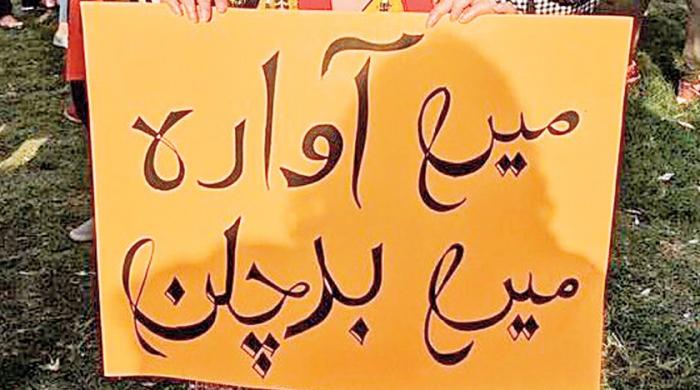 میں آوارہ
میں بدچلن